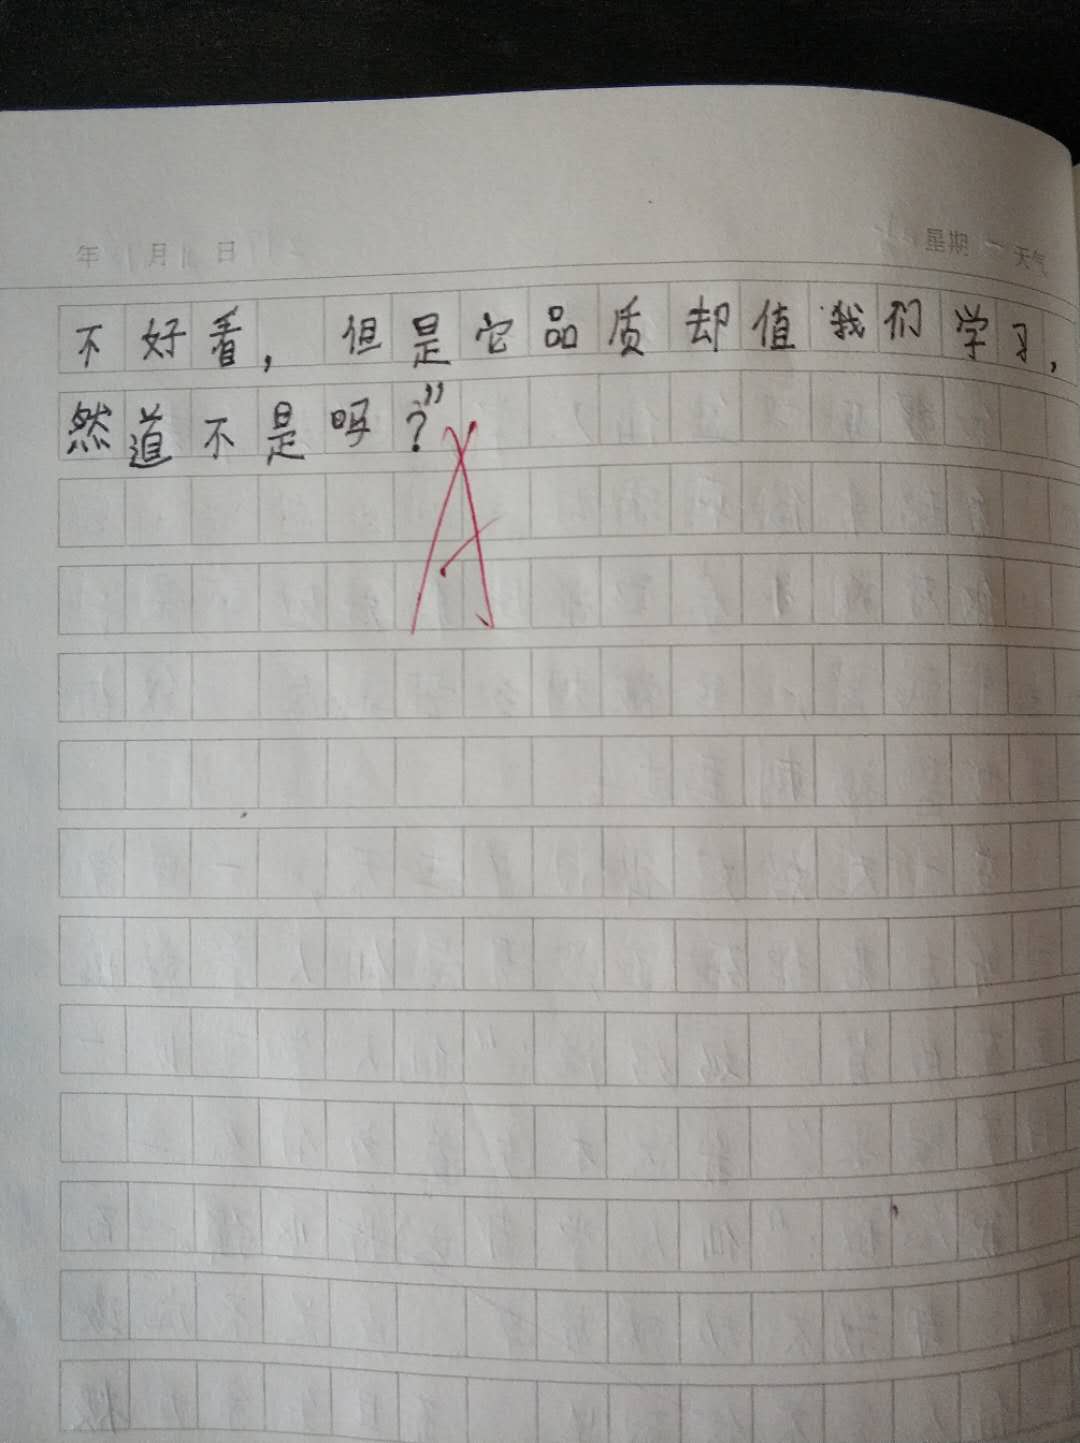 年 月 日 星期 天气
不好看，但是它品质却值我们学习，
然道不是吗？”
A